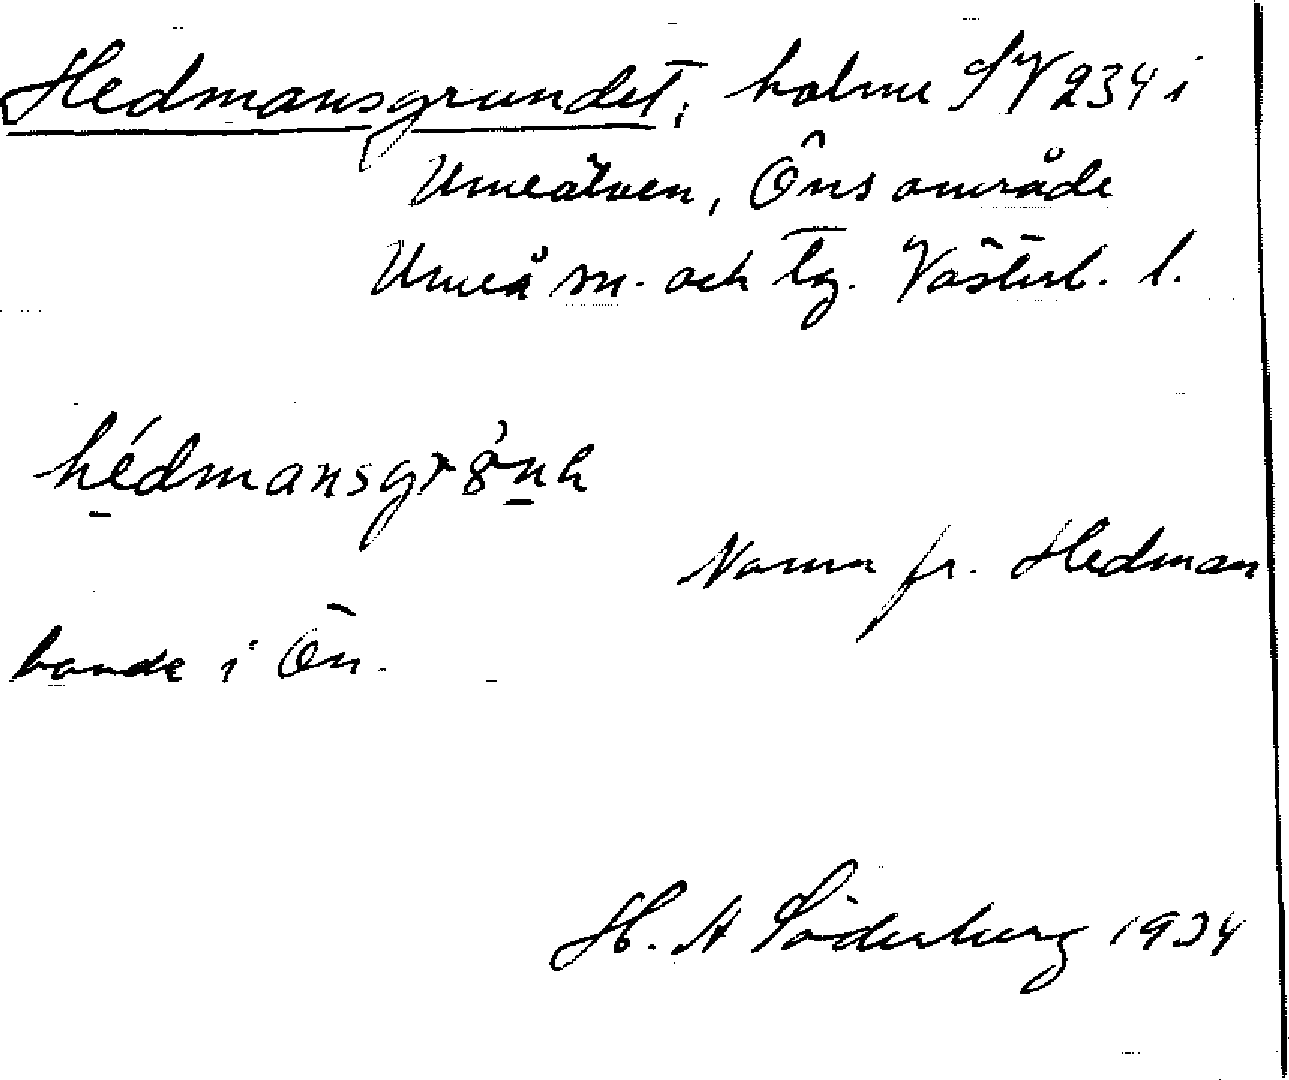 Hedmansgrundet, holme SV 234 i
Umeälven, Öns område
Umeå sn. och tg. Västerb. l.
hédmansgrȣ́nḁ
Namn fr. Hedman
bonde i Ön.
H. A Söderberg 1934